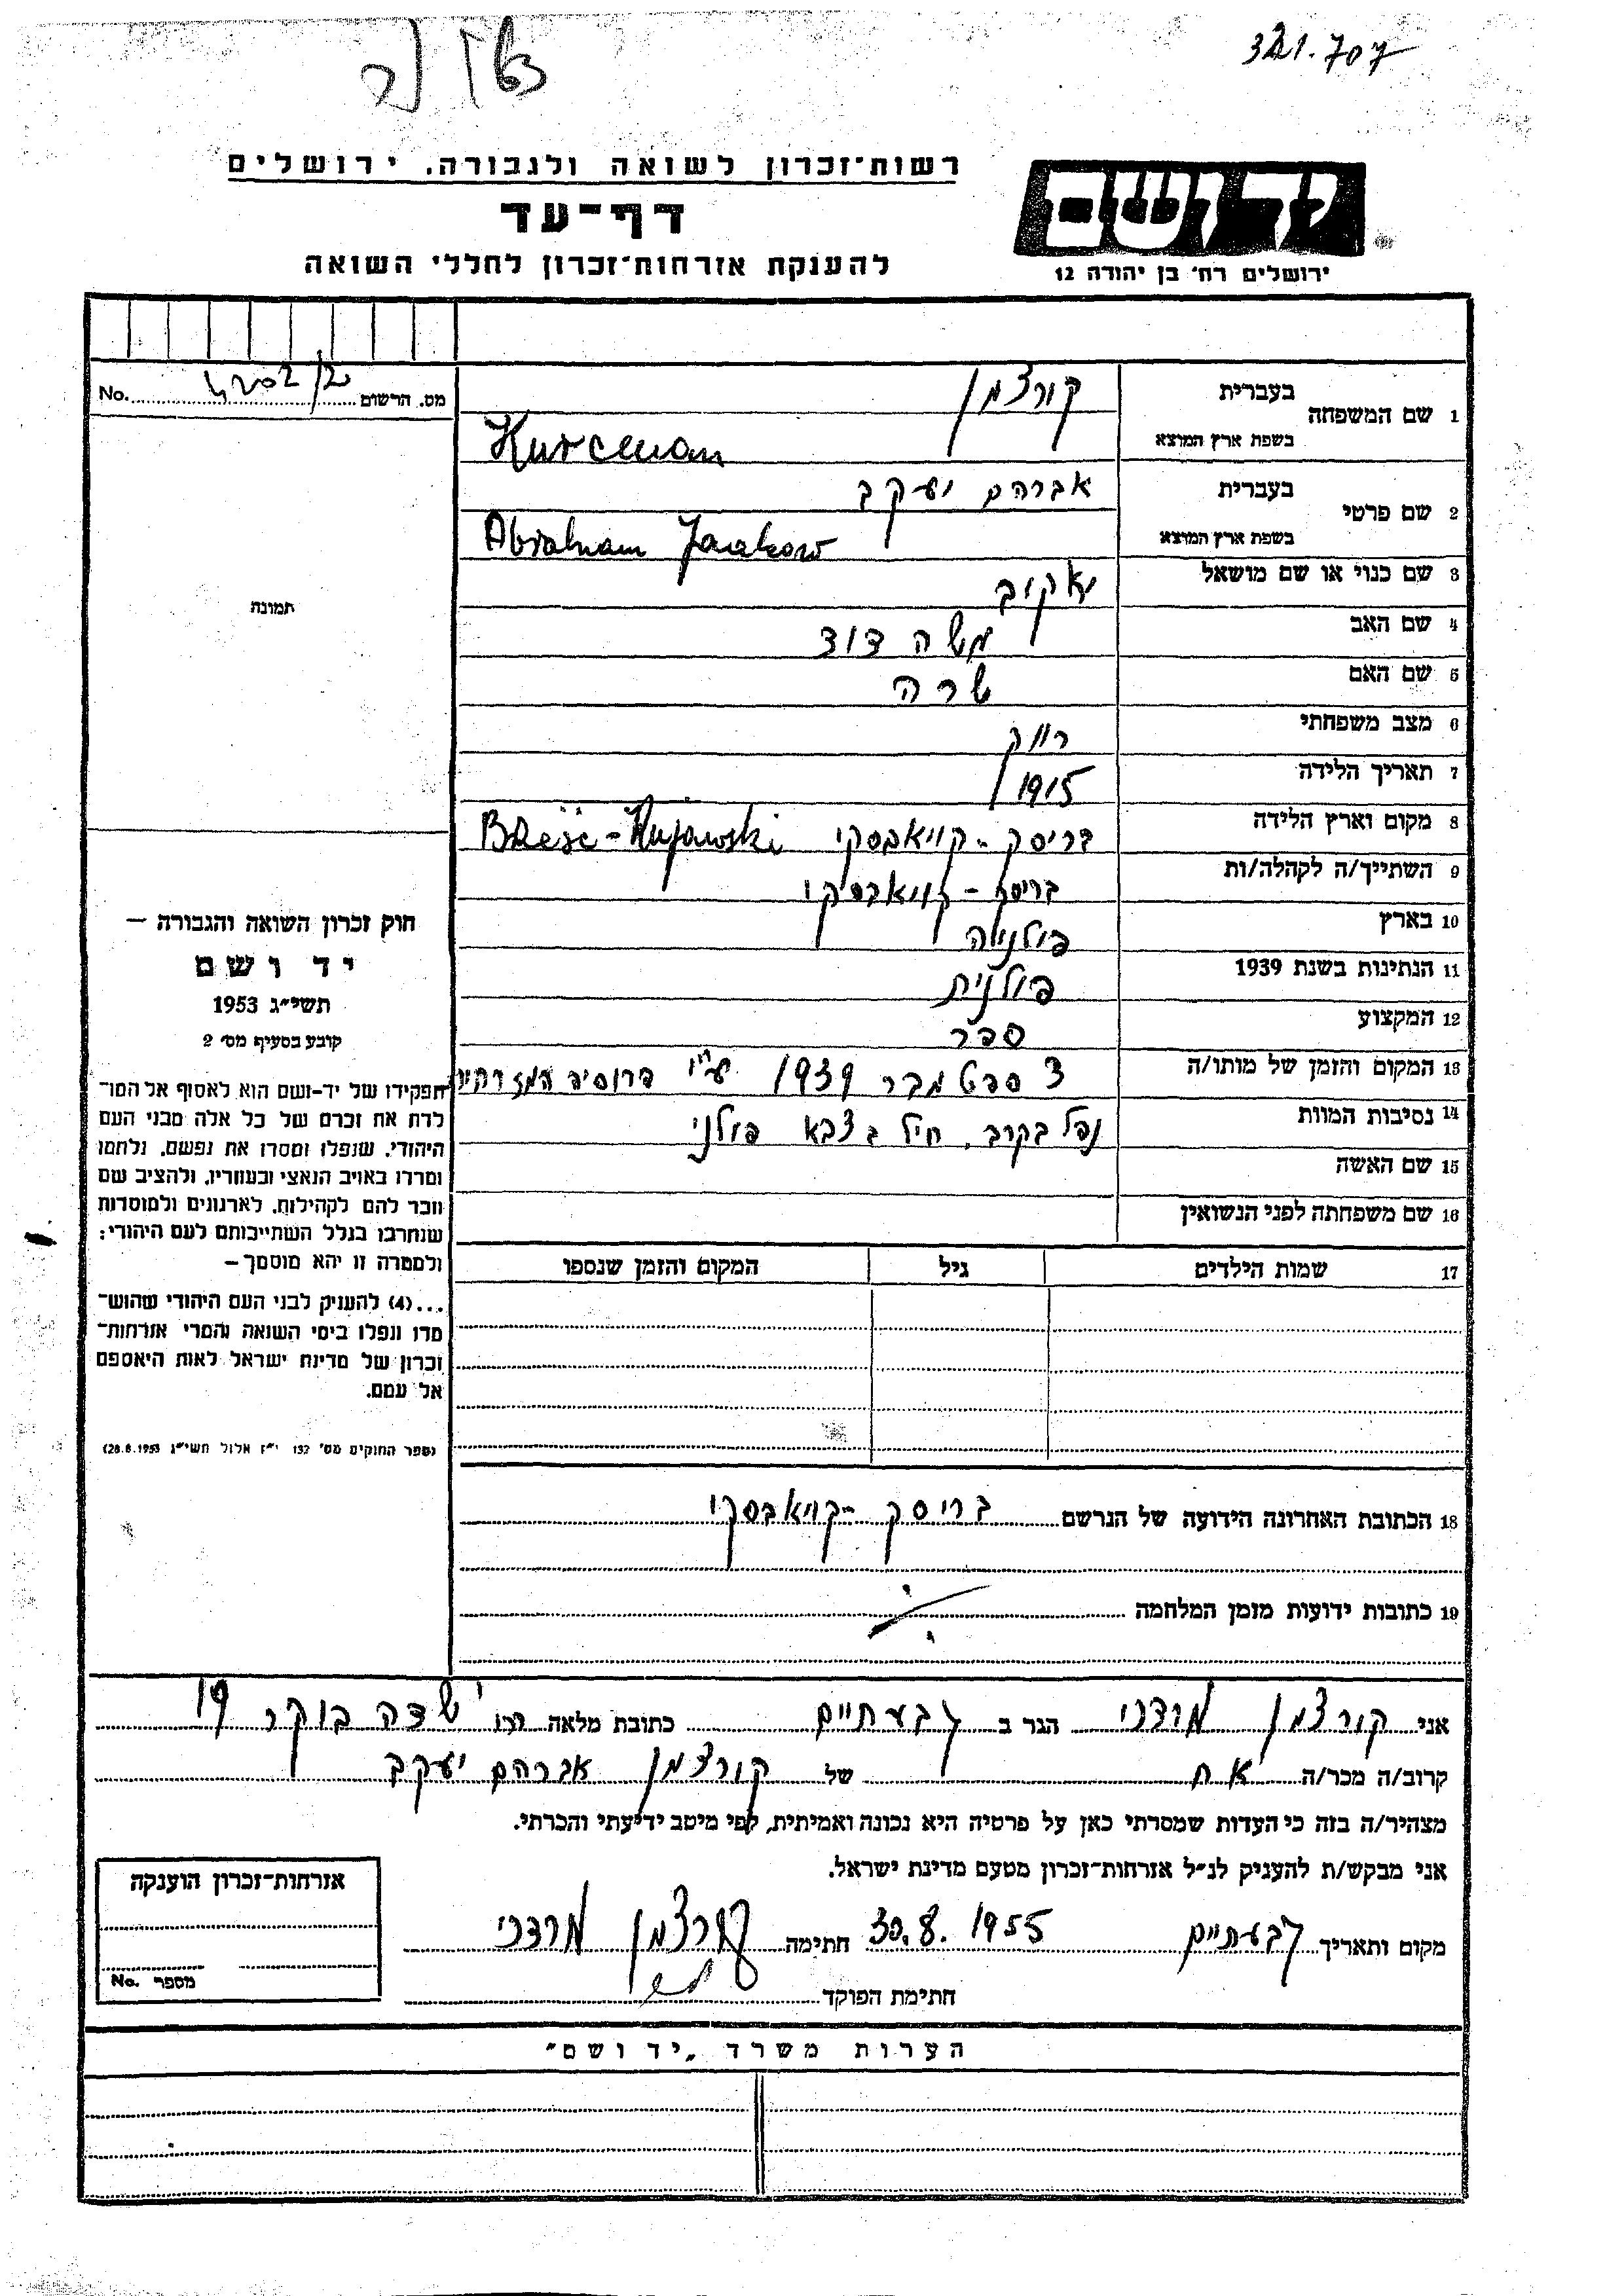 321.707
רשות־זכרון לשואה ולגבורה. ירושלים
יד ושם
דף־עד
ירושלים רח׳ בן יהודה 12
להענקת אזרחות־זכרון לחללי השואה
מס. הרשום No.
1 שם המשפחה בעברית קורצמן
בשפת ארץ המוצא Kurcman
2 שם פרטי בעברית אברהם יעקב
בשפת ארץ המוצא Abraham Jaakow
3 שם כנוי או שם מושאל יאקוב
4 שם האב משה דוד
5 שם האם שרה
6 מצב משפחתי רווק
7 תאריך הלידה 1915
8 מקום וארץ הלידה בריסק - קויאבסקי Brześć - Kujawski
9 השתייך/ה לקהלה/ות בריסק - קויאבסקי
10 בארץ פולניה
11 הנתינות בשנת 1939 פולנית
12 המקצוע ספר
13 המקום והזמן של מותו/ה 3 ספטמבר 1939 ע״י פרוסיה המזרחית
14 נסיבות המוות נפל בקרב. חיל בצבא פולני
15 שם האשה
16 שם משפחתה לפני הנשואין
17 שמות הילדים גיל המקום והזמן שנספו
תמונה
חוק זכרון השואה והגבורה —
יד ושם
תשי״ג 1953
קובע בסעיף מס׳ 2
תפקידו של יד-ושם הוא לאסוף אל המו־
לדת את זכרם של כל אלה מבני העם
היהודי, שנפלו ומסרו את נפשם, נלחמו
ומרדו באויב הנאצי ובעוזריו, ולהציב שם
וזכר להם לקהילות, לארגונים ולמוסדות
שנחרבו בגלל השתייכותם לעם היהודי:
ולמטרה זו יהא מוסמך —
...(4) להעניק לבני העם היהודי שהוש־
מדו ונפלו בימי השואה והמרי אזרחות־
זכרון של מדינת ישראל לאות היאספם
אל עמם.
(ספר החוקים מס׳ 132 י״ז אלול תשי״ג 28.8.1953)
18 הכתובת האחרונה הידועה של הנרשם בריסק - קויאבסקי
19 כתובות ידועות מזמן המלחמה
אני קורצמן מרדכי הגר ב גבעתיים כתובת מלאה רח׳ שדה בוקר 19
קרוב/ה מכר/ה אח של קורצמן אברהם יעקב
מצהיר/ה בזה כי העדות שמסרתי כאן על פרטיה היא נכונה ואמיתית, לפי מיטב ידיעתי והכרתי.
אני מבקש/ת להעניק לנ״ל אזרחות־זכרון מטעם מדינת ישראל.
מקום ותאריך גבעתיים 30.8.1955 חתימה קורצמן מרדכי
חתימת הפוקד
אזרחות־זכרון הוענקה
מספר No.
הערות משרד „יד ושם״